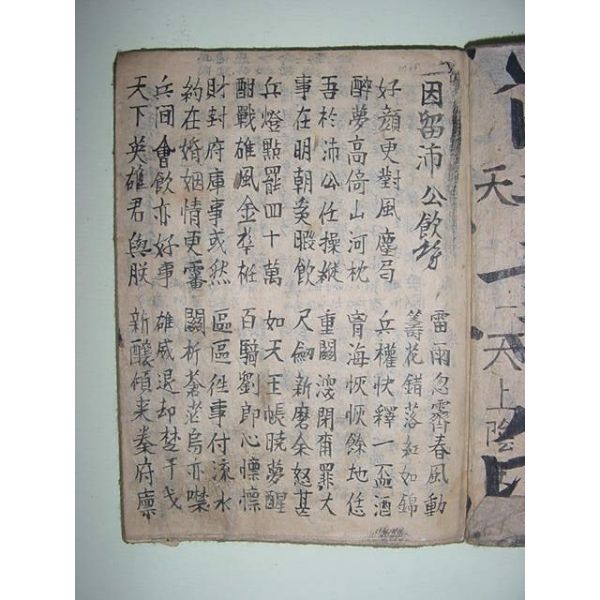 因留沛公飮
雷雨忽霽春風動
籌花錯落紅如錦
好顔更對風塵局
兵權快釋一盃酒
醉夢高倚山河枕
胷海恢恢餘地恁
吾於沛公任操縱
重關湥閉罪大
事在明朝奚暇飮
尺劒新磨余怒甚
兵燈點罷四十萬
如天玉帳曉夢醒
酣戰雄風金
百騎劉郞心懍懍
財封府庫事或然
區區徃事付流水
約在婚姻情更
關析蒼茫烏亦噤
兵间會飮亦好事
雄威退却楚干戈
天下英雄君與朕
新釀傾来秦府廩
天
天上陰